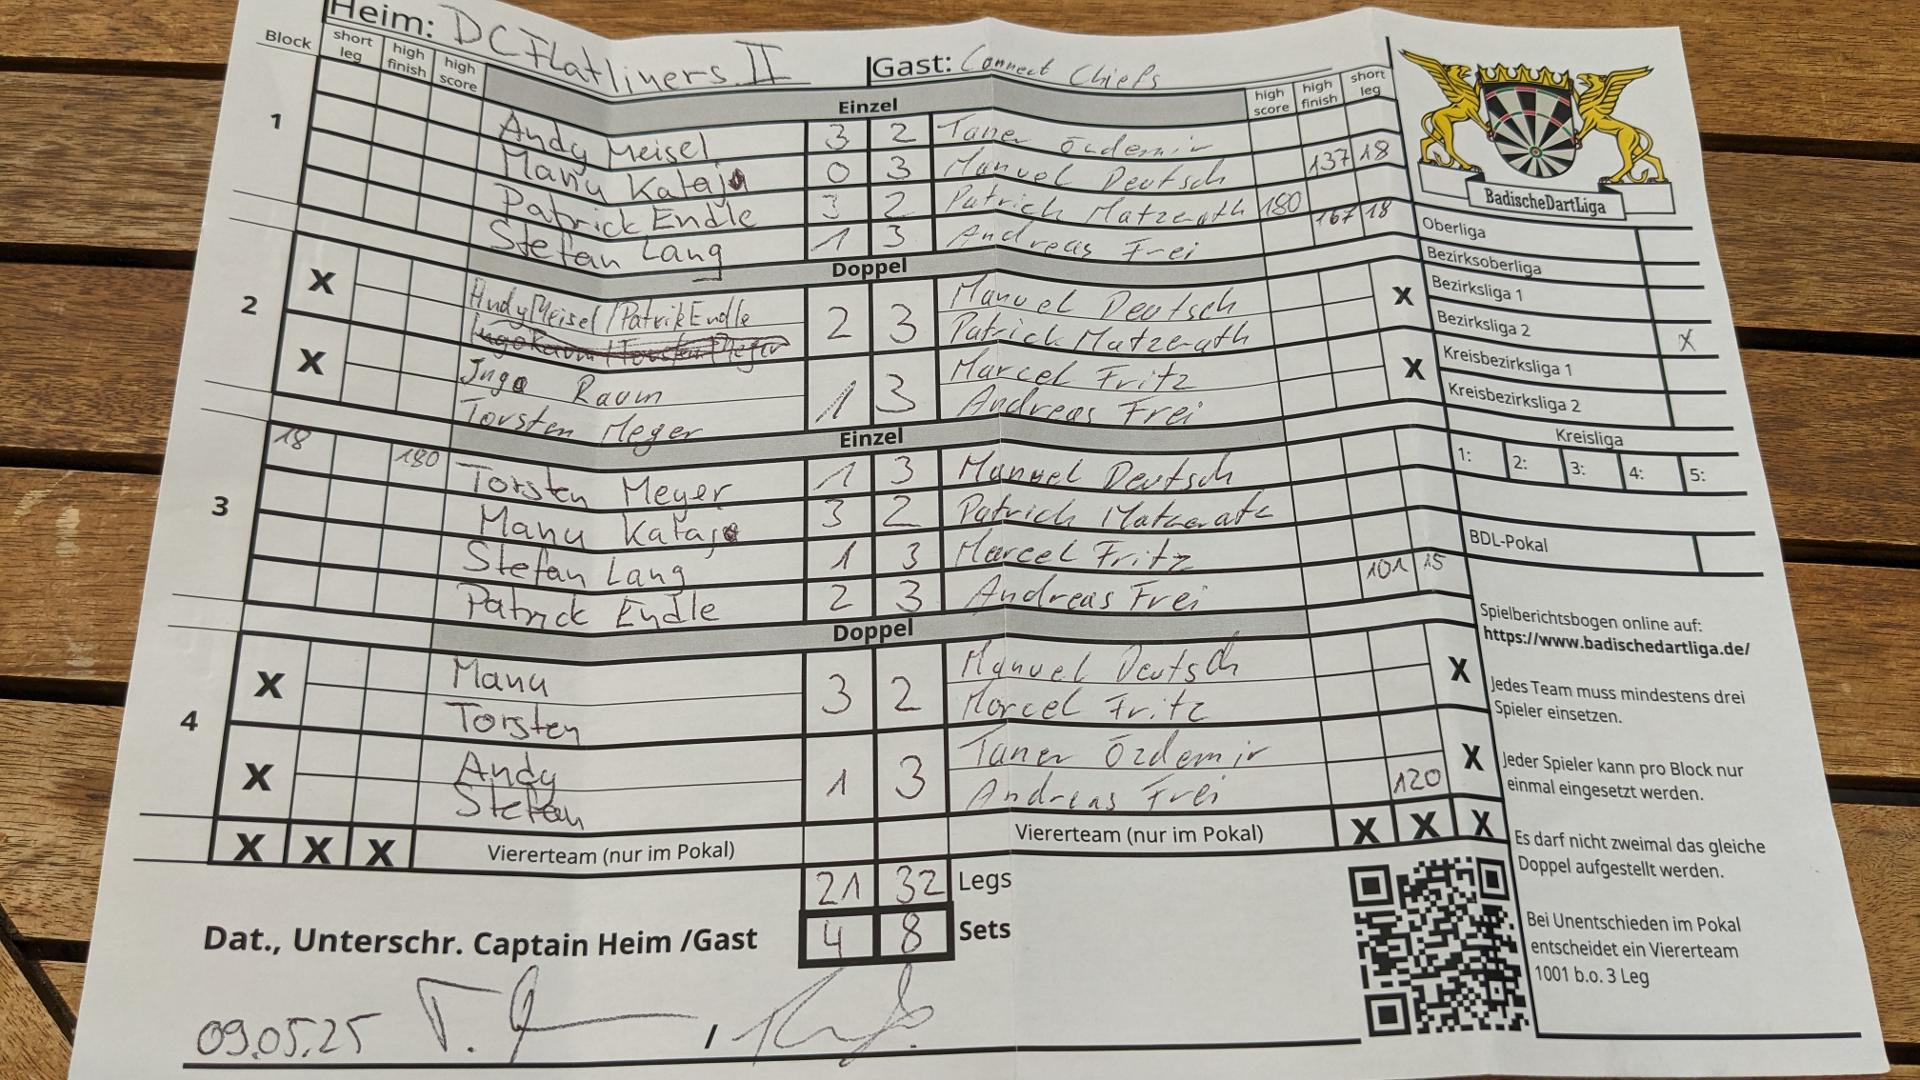 Heim: DC Flatliners II Gast: Connect Chiefs
Block short leg high finish high score Einzel high score high finish short leg
1
Andy Meisel 3 2 Taner Özdemir
Manu Kataja 0 3 Manuel Deutsch 137 18
Patrick Endle 3 2 Patrich Matzerath 180
Stefan Lang 1 3 Andreas Frei 167 18
Doppel
2
X Andy Meisel / Patrik Endle 2 3 Manuel Deutsch X
Patrich Matzerath
X Ingo Raum 1 3 Marcel Fritz X
Torsten Meyer Andreas Frei
Einzel
3
18 180 Torsten Meyer 1 3 Manuel Deutsch
Manu Kataja 3 2 Patrich Matzerath
Stefan Lang 1 3 Marcel Fritz
Patrick Endle 2 3 Andreas Frei 101 15
Doppel
4
X Manu 3 2 Manuel Deutsch X
Torsten Marcel Fritz
X Andy 1 3 Taner Özdemir X
Stefan Andreas Frei 120
X X X Viererteam (nur im Pokal) Viererteam (nur im Pokal) X X X
21 32 Legs
4 8 Sets
Dat., Unterschr. Captain Heim /Gast
09.05.25 /
BadischeDartLiga
Oberliga
Bezirksoberliga
Bezirksliga 1
Bezirksliga 2 X
Kreisbezirksliga 1
Kreisbezirksliga 2
Kreisliga
1: 2: 3: 4: 5:
BDL-Pokal
Spielberichtsbogen online auf:
https://www.badischedartliga.de/
Jedes Team muss mindestens drei
Spieler einsetzen.
Jeder Spieler kann pro Block nur
einmal eingesetzt werden.
Es darf nicht zweimal das gleiche
Doppel aufgestellt werden.
Bei Unentschieden im Pokal
entscheidet ein Viererteam
1001 b.o. 3 Leg